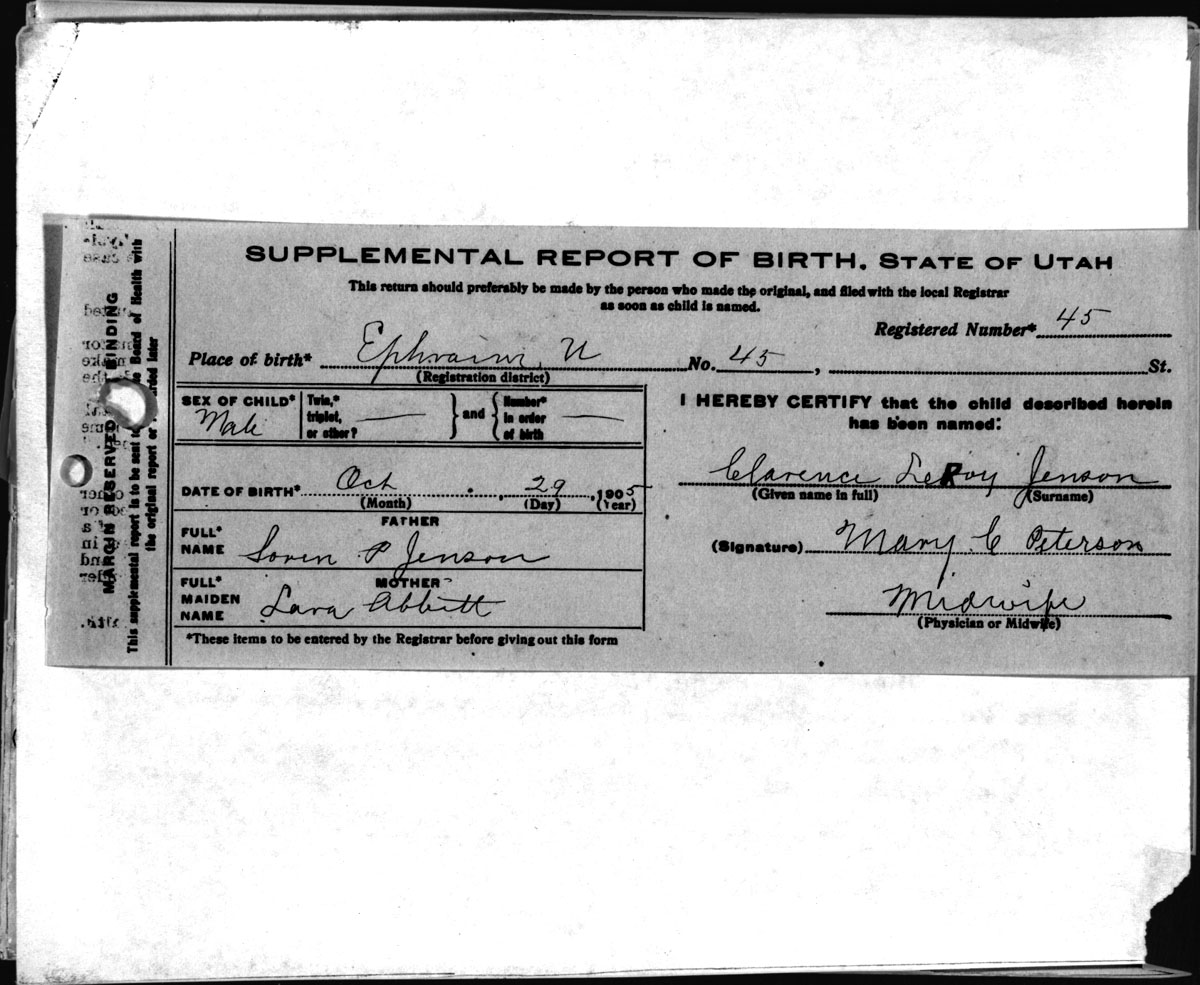 SUPPLEMENTAL REPORT OF BIRTH. STATE OF UTAH
This return should preferably be made by the person who made the original, and filed with the local Registrar
as soon as child is named.
Registered Number* 45
Place of birth* Ephraim, U No. 45, St.
(Registration district)
SEX OF CHILD* Male
Twin,* triplet, or other? —
and
Number* in order of birth —
DATE OF BIRTH* Oct. 29, 1905
(Month) (Day) (Year)
FATHER
FULL* NAME Soren P Jenson
MOTHER
FULL* MAIDEN NAME Lara Abbitt
*These items to be entered by the Registrar before giving out this form
I HEREBY CERTIFY that the child described herein
has been named:
Clarence LeRoy Jenson
(Given name in full) (Surname)
(Signature) Mary C Peterson
Midwife
(Physician or Midwife)
MARGIN RESERVED BINDING
This supplemental report in to be sent to Board of Health with
the original report or later